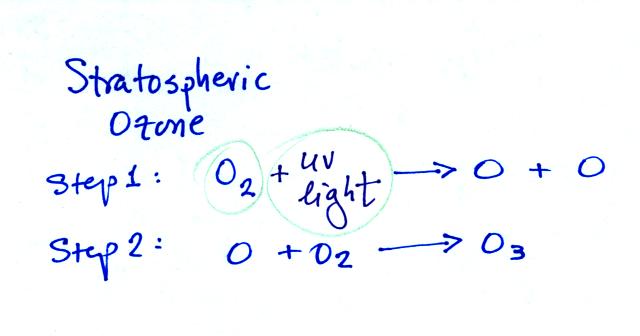 Stratospheric
Ozone
Step 1: O₂ + uv light → O + O
Step 2: O + O₂ → O₃